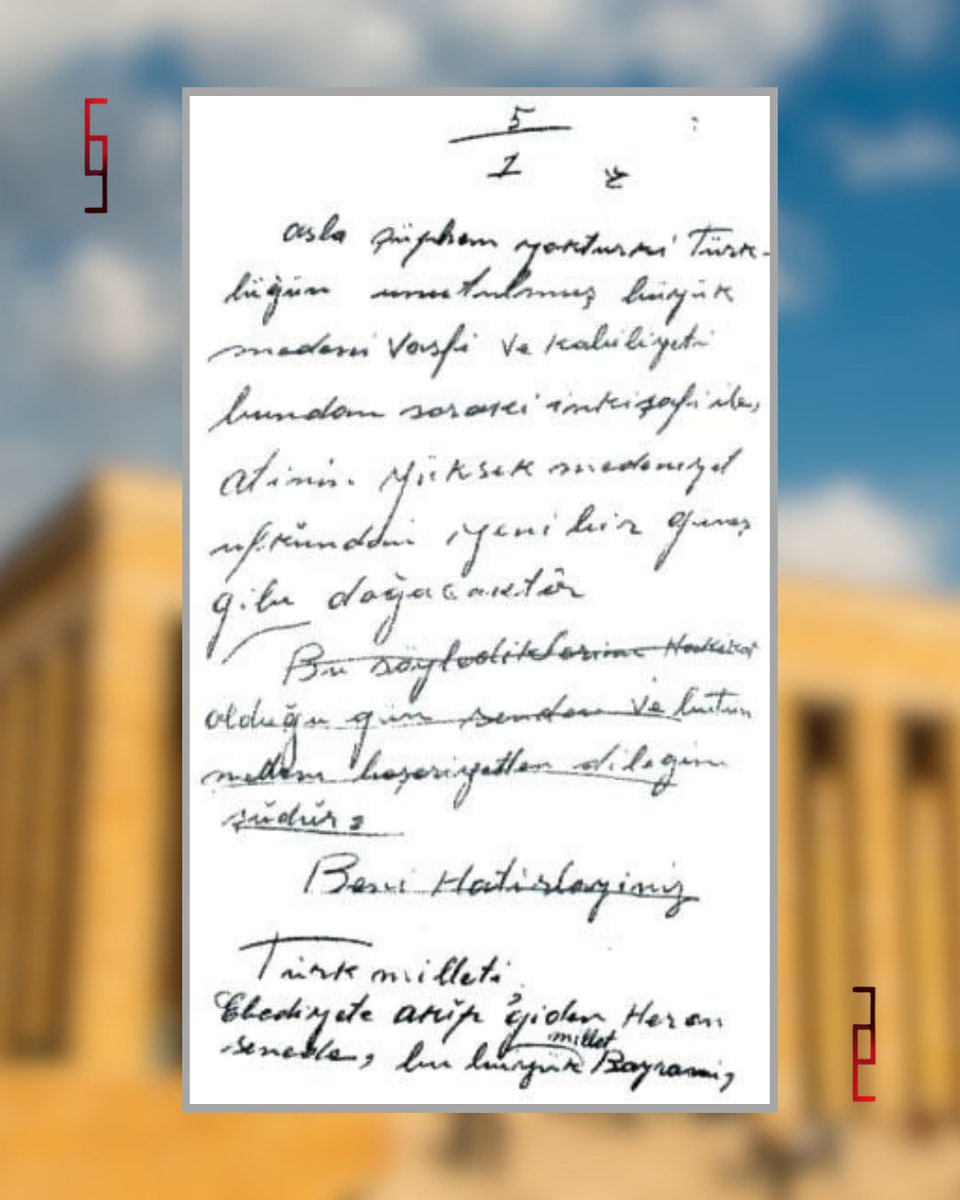 5
1
asla şüphem yokturki Türk-
lüğün unutulmuş büyük
medeni vasfi ve kabiliyeti
bundan sonraki inkişafi ile,
atinin yüksek medeniyet
ufkundan yeni bir güneş
gibi doğacaktır
Bu söylediklerim Hakikat
olduğu gün senden ve bütün
medeni beşeriyetten dileğim
şudur:
Beni Hatirlayiniz
Türk milleti,
Ebediyete akıp giden Her on
senede, bu büyük millet Bayramı,